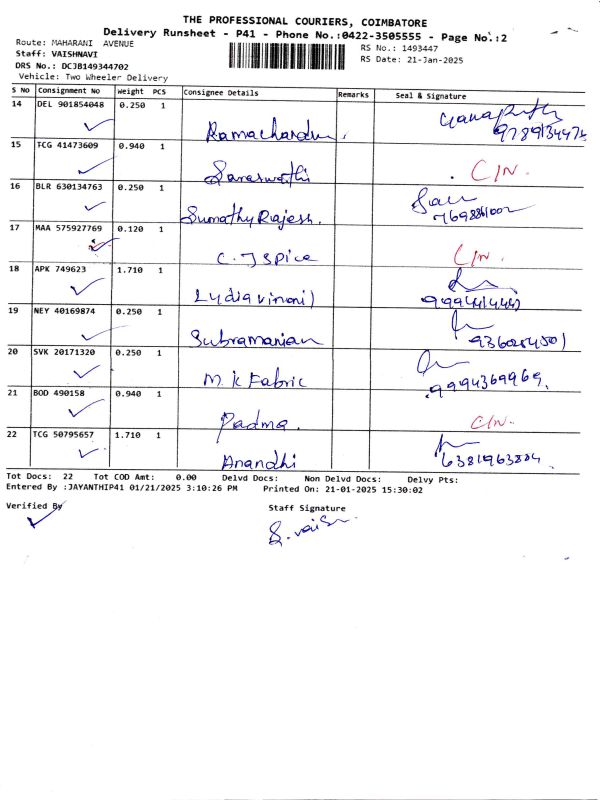 THE PROFESSIONAL COURIERS, COIMBATORE
Delivery Runsheet - P41 - Phone No.:0422-3505555 - Page No.:2
Route: MAHARANI AVENUE
RS No.: 1493447
Staff: VAISHNAVI
RS Date: 21-Jan-2025
DRS No.: DCJB149344702
Vehicle: Two Wheeler Delivery
S No Consignment No Weight PCS Consignee Details Remarks Seal & Signature
14 DEL 901854048 0.250 1
Ramachandran.
15 TCG 41473609 0.940 1
Saraswathi C/N.
16 BLR 630134763 0.250 1
Sumathy Rajesh.
17 MAA 575927769 0.120 1
C.J Spice C/N.
18 APK 749623 1.710 1
Lydiavinoni)
19 NEY 40169874 0.250 1
Subramanian
20 SVK 20171320 0.250 1
M.K Fabric 9994369969.
21 BOD 490158 0.940 1
Padma. C/N.
22 TCG 50795657 1.710 1
Anandhi 6381963804
Tot Docs: 22 Tot COD Amt: 0.00 Delvd Docs: Non Delvd Docs: Delvy Pts:
Entered By :JAYANTHIP41 01/21/2025 3:10:26 PM Printed On: 21-01-2025 15:30:02
Verified By
Staff Signature